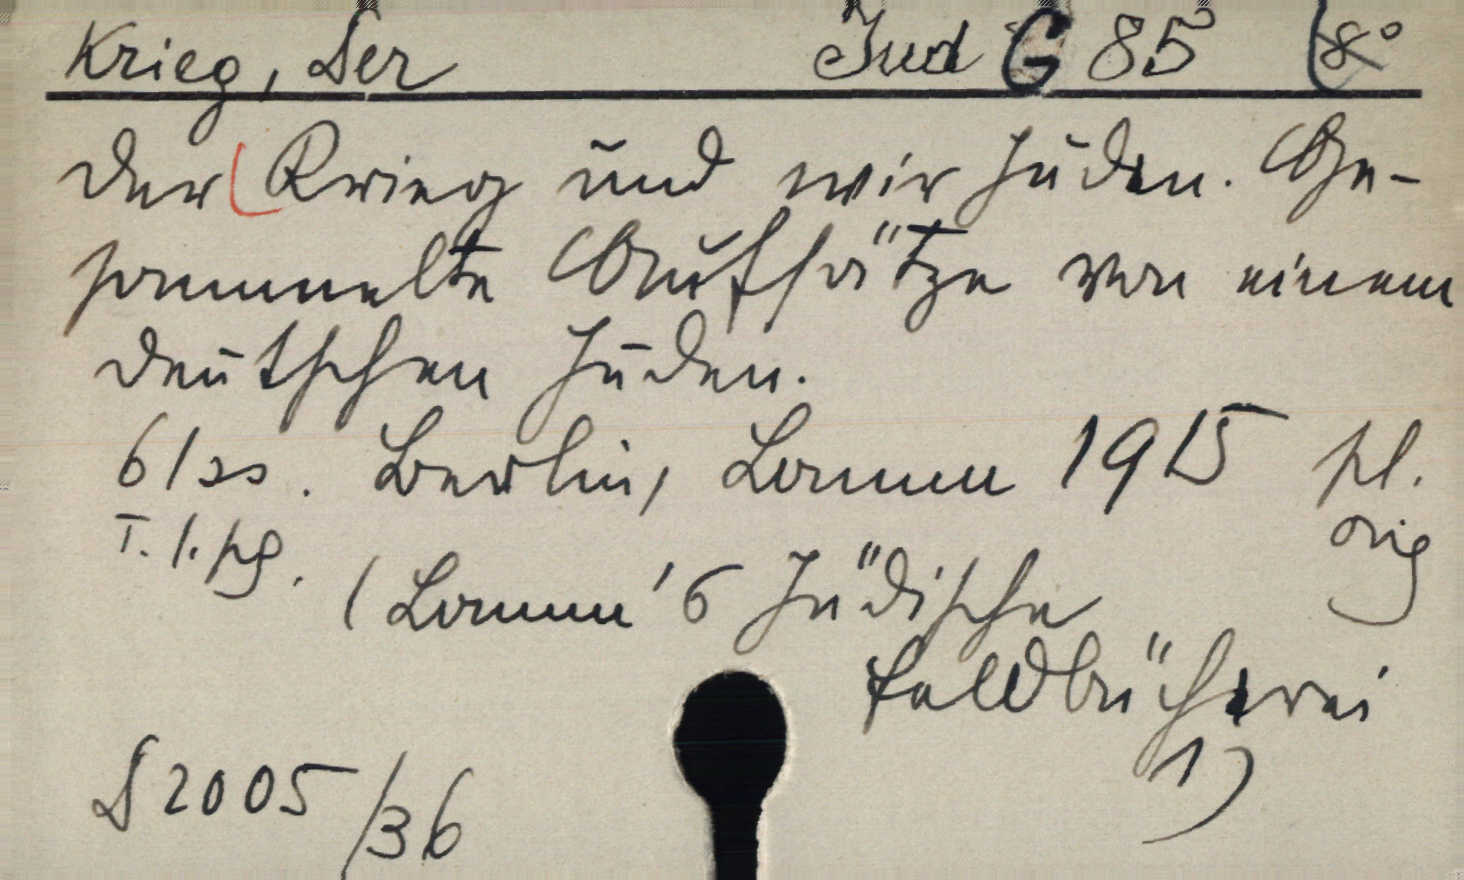 Krieg, Der Jud G 85 8°
Der Krieg und wir Juden. Ge-
sammelte Aufsätze von einem
deutschen Juden.
61 ss. Berlin, Lamm 1915 pl.
T. 1. pg. orig
(Lamm's Jüdische
Feldbücherei
1)
S 2005/36